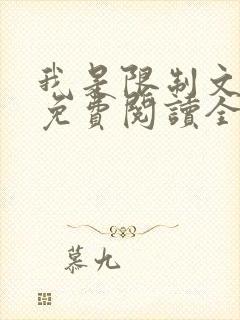 我是限制文
免費閱讀全
慕九